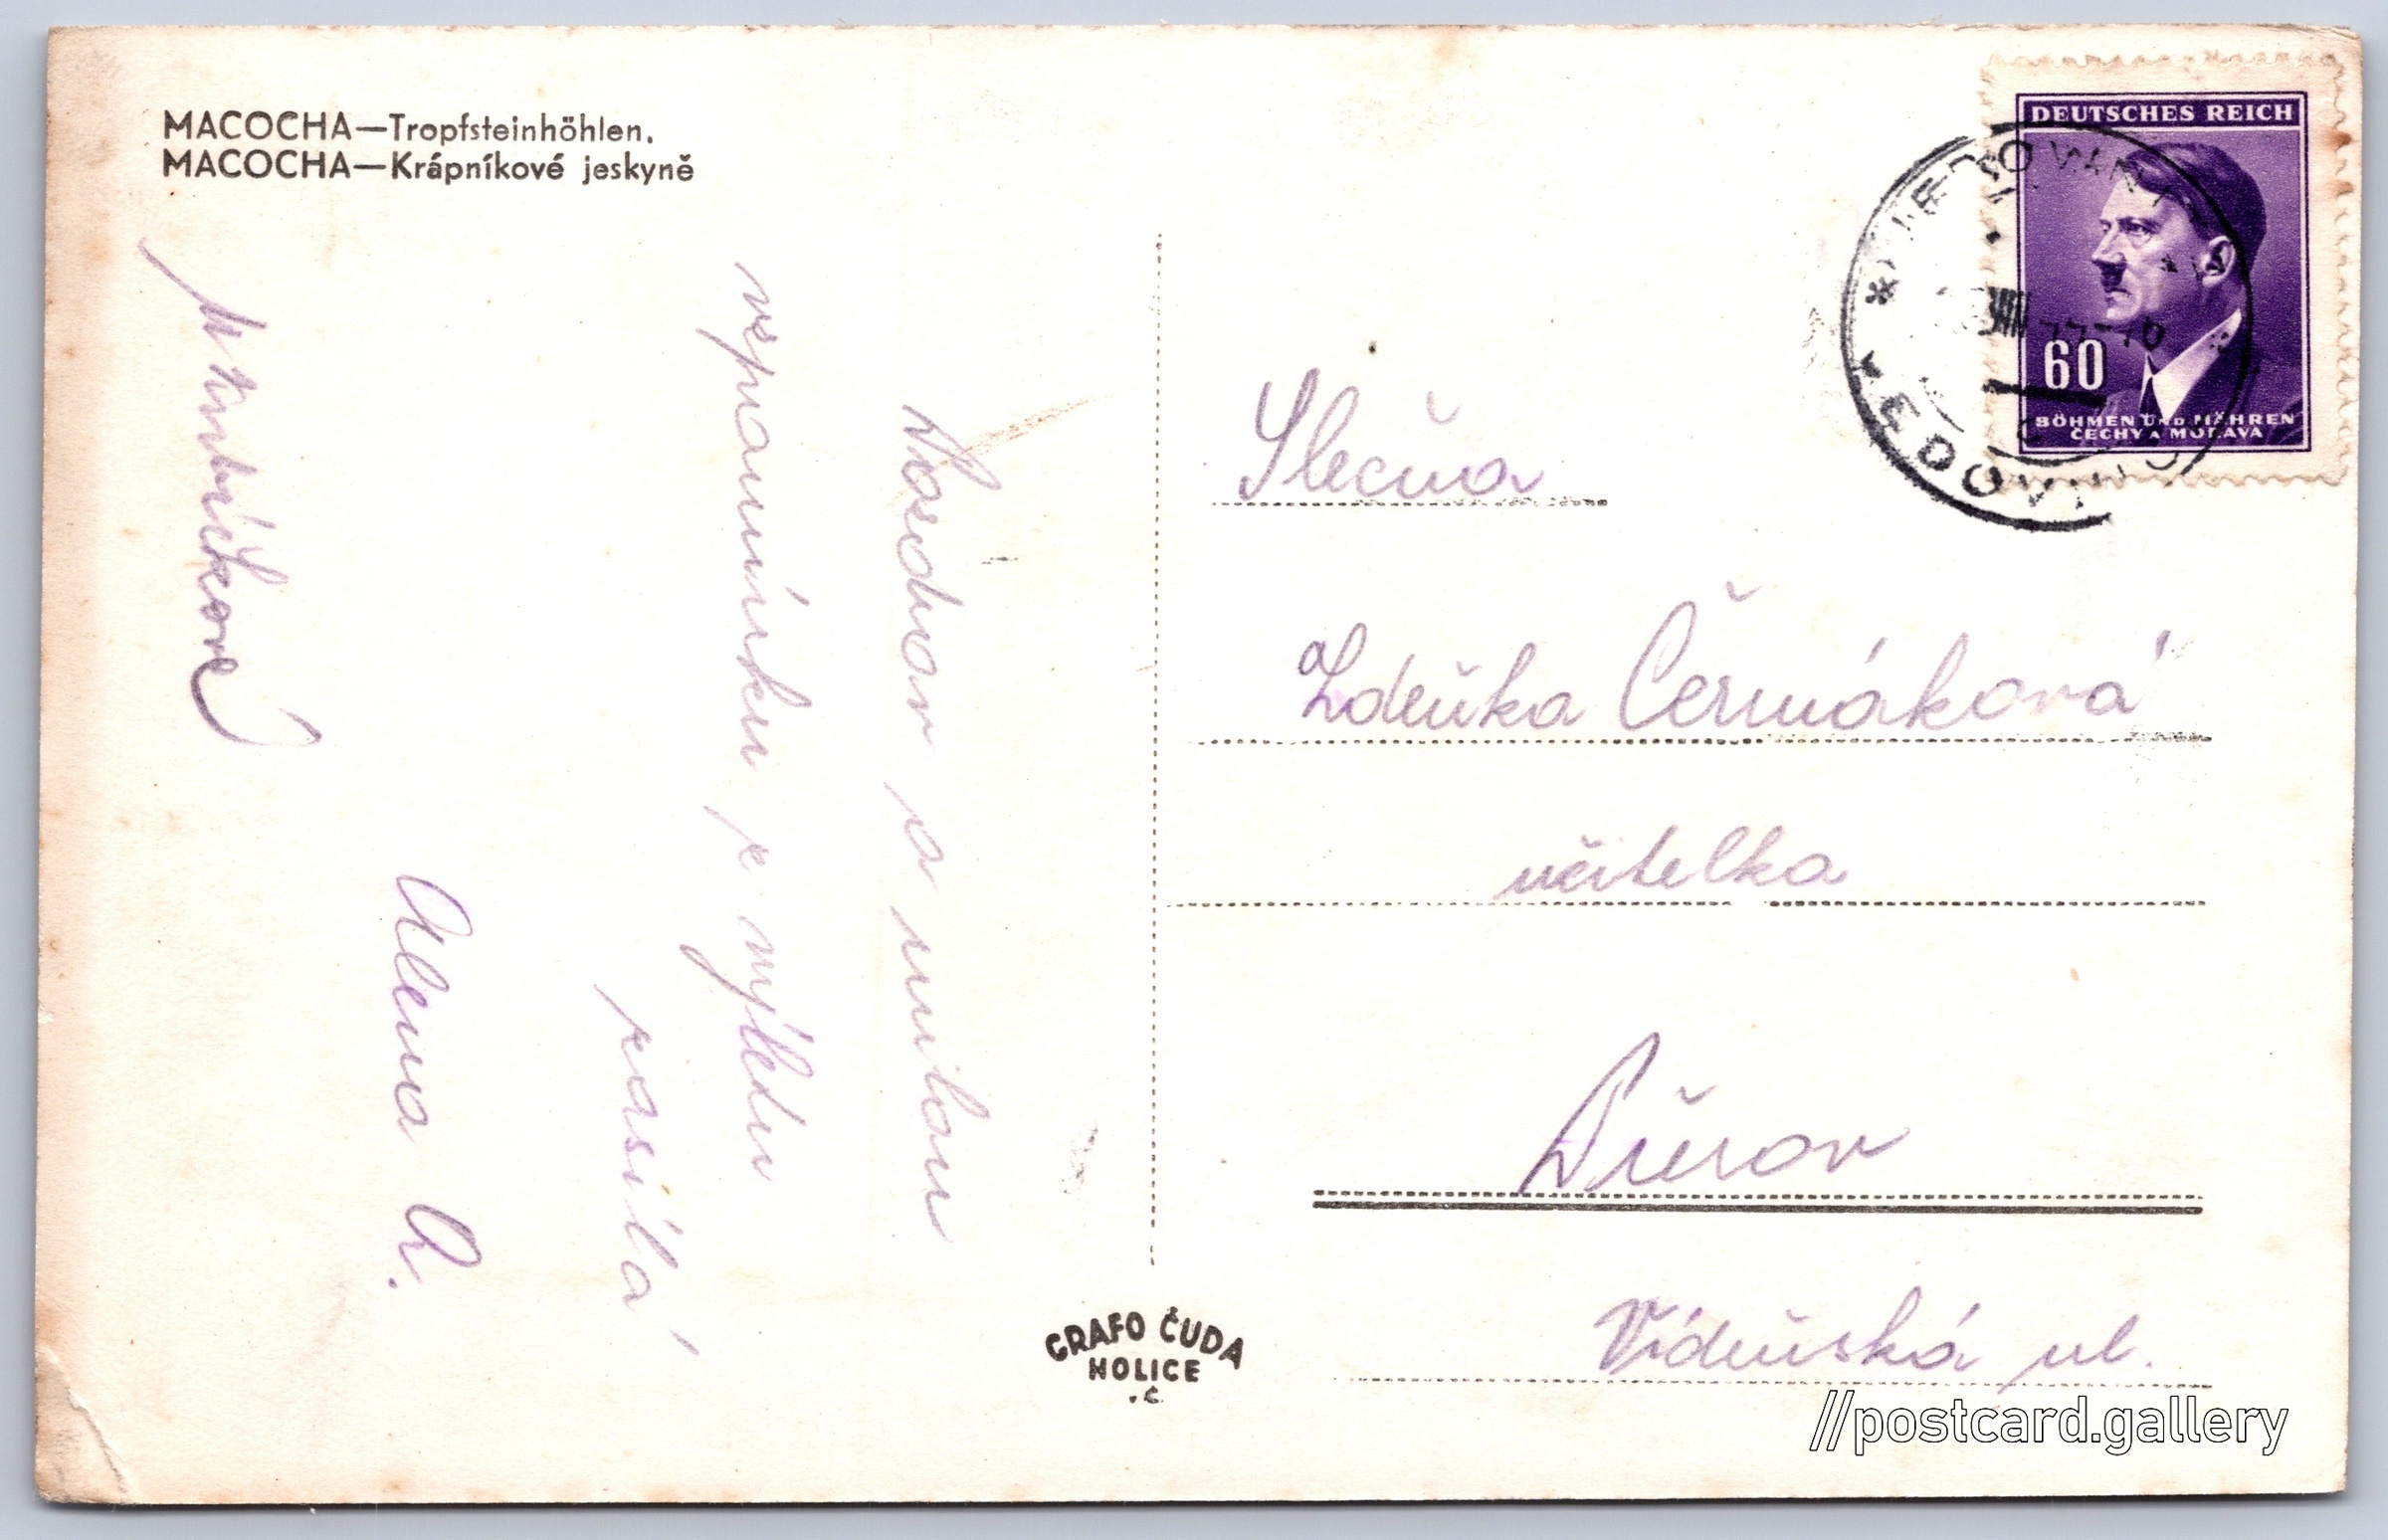 MACOCHA—Tropfsteinhöhlen.
MACOCHA—Krápníkové jeskyně
DEUTSCHES REICH
60
BÖHMEN UND MÄHREN
ČECHY A MORAVA
Pozdrav a milou
vzpomínku z výletu
zasílá
Alena R.
Slečna
Zdeňka Čermáková
učitelka
Přerov
Vídeňská ul.
GRAFO ČUDA
HOLICE
.č.
//postcard.gallery